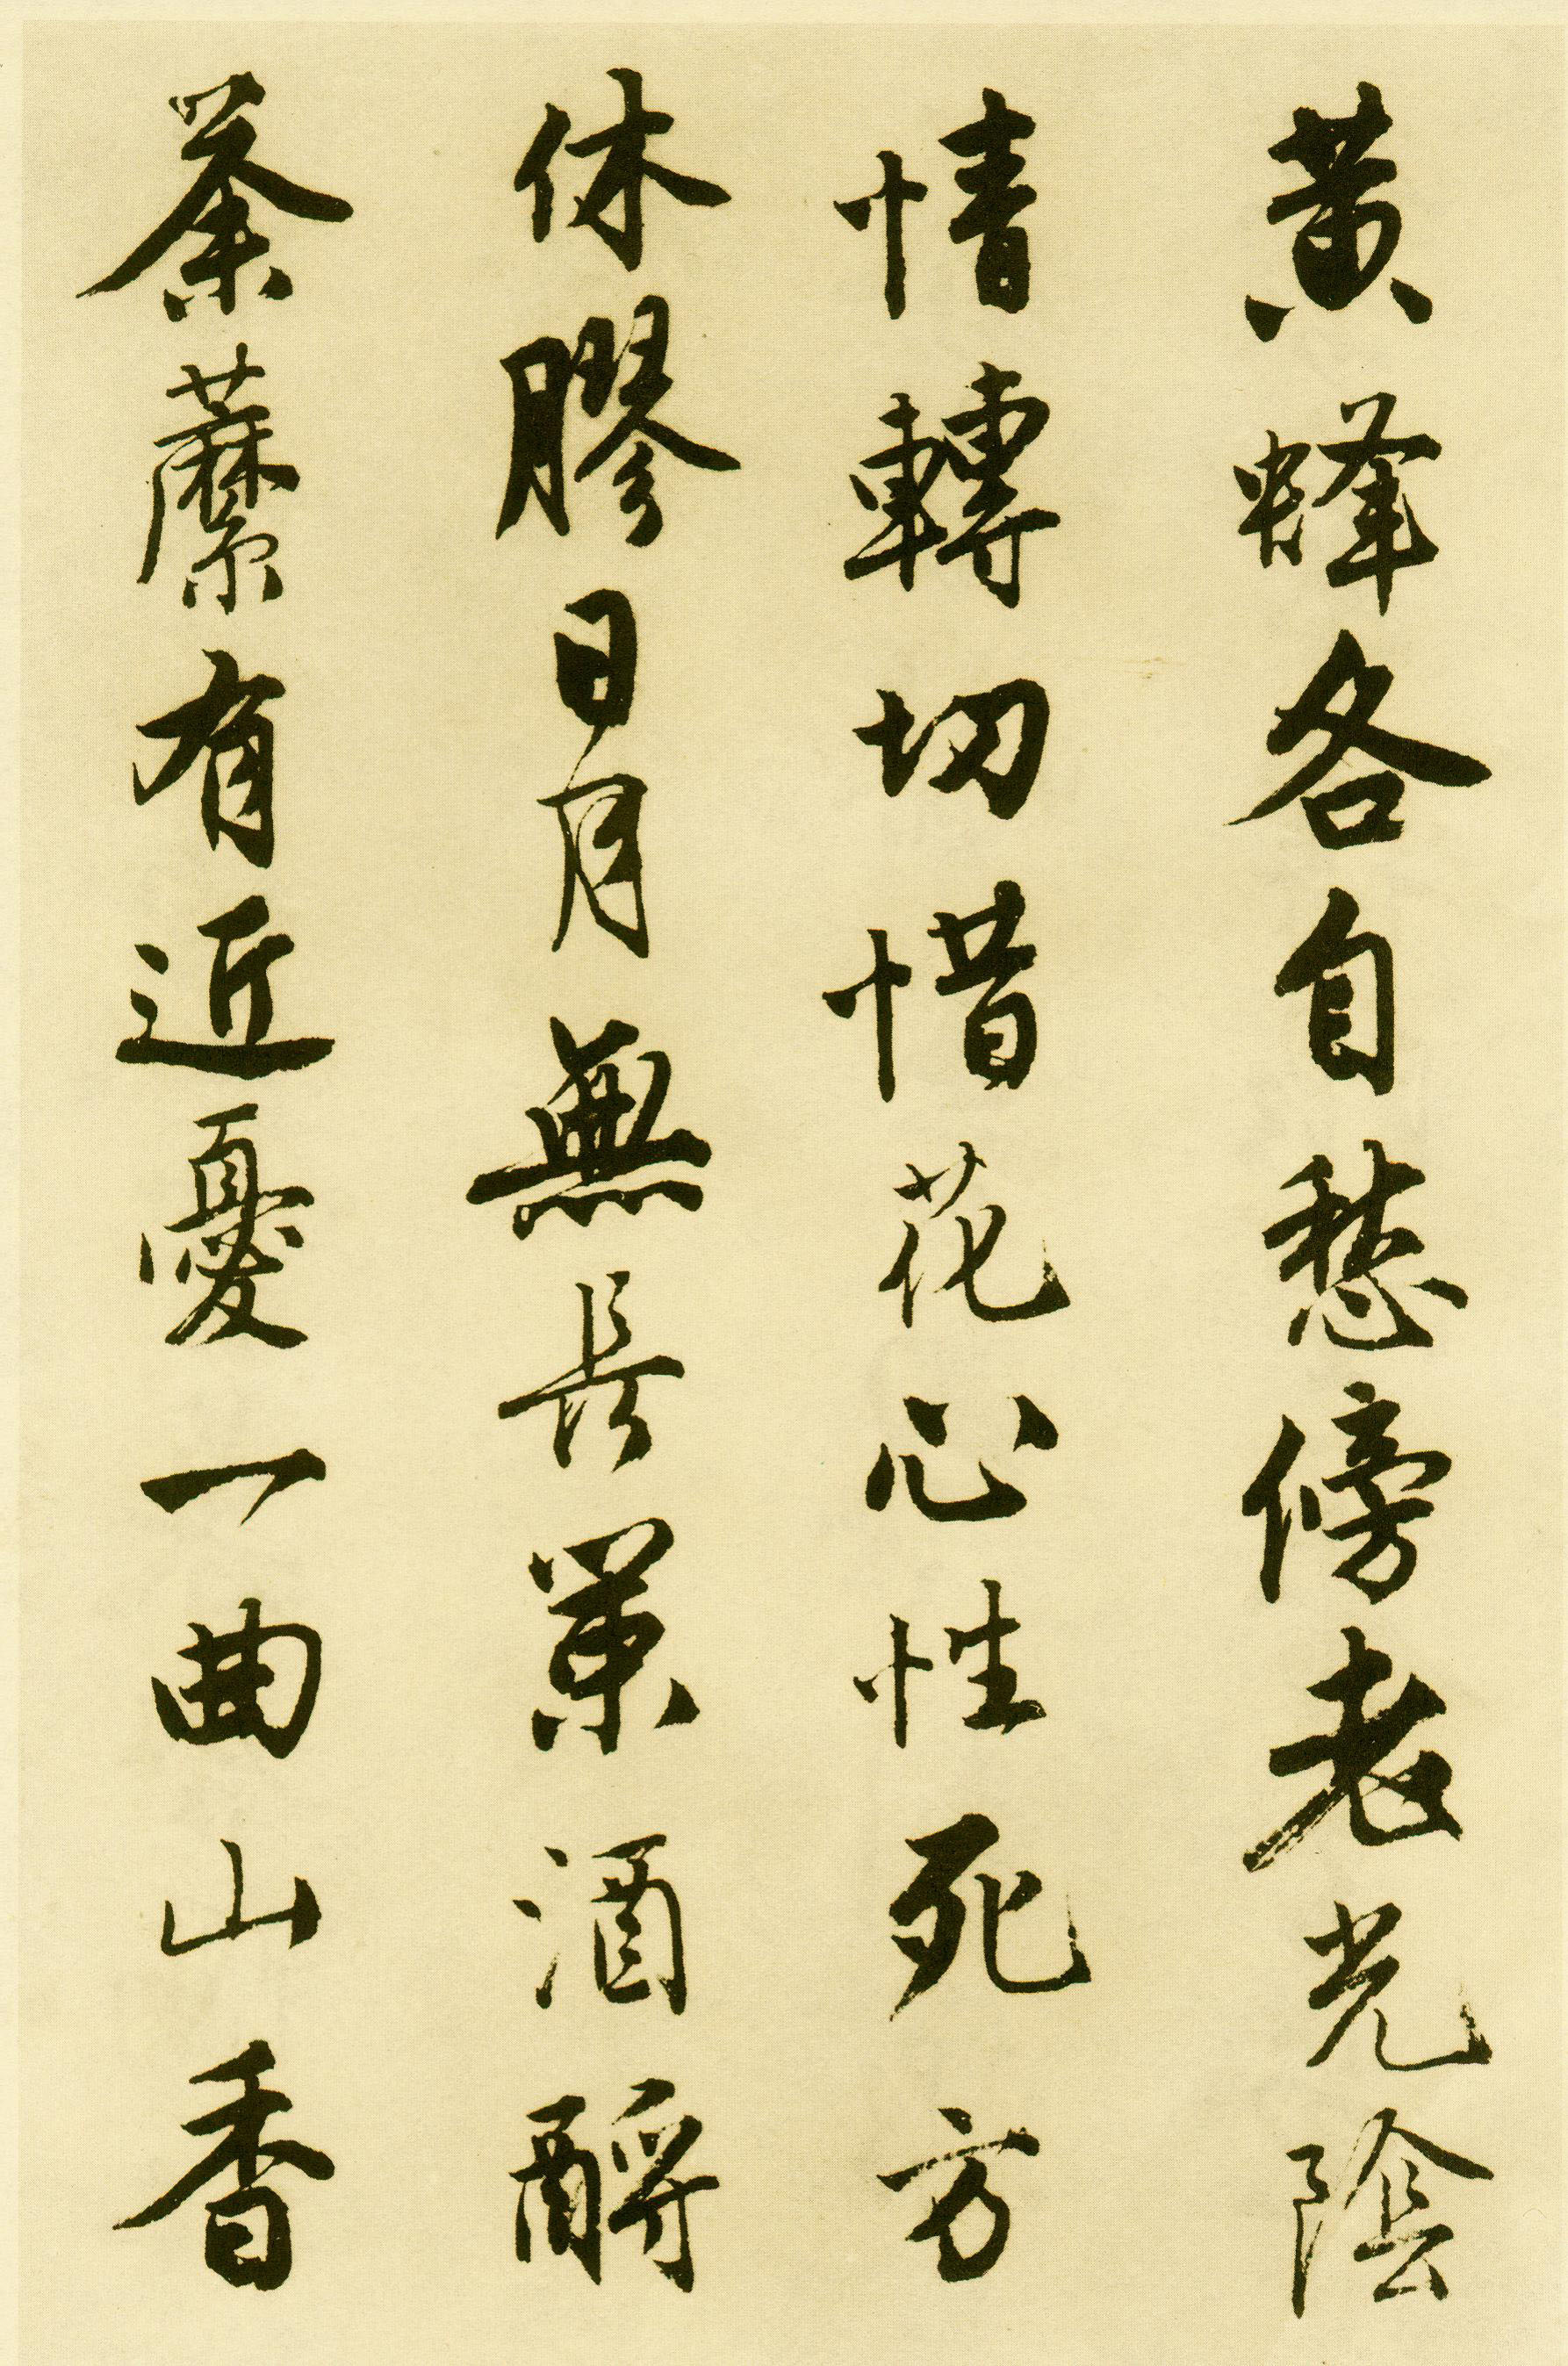 黄蜂各自愁傍老光陰
情轉切惜花心性死方
休膠日月無長策酒酹
荼蘼有近憂一曲山香